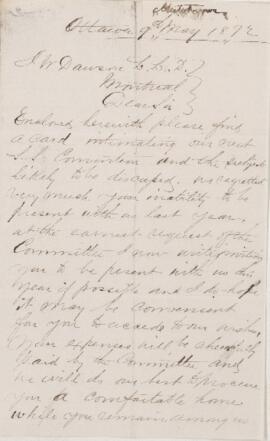 Ottawa 9th May 1872
J W Dawson L.L.D.
Montreal
Dear Sir
Enclosed herewith please find
a card intimating our next
S.S. Convention and the subjects
likely to be discussed. we regretted
very much your inability to be
present with us last year,
at the earnest request of the
Committee I now write inviting
you to be present with us this
year if possible and I do hope
it may be convenient
for you to accede to our wishes,
your expenses will be cheerfully
paid by the Committee and
we will do our best to procure
you a comfortable home
while you remain among us